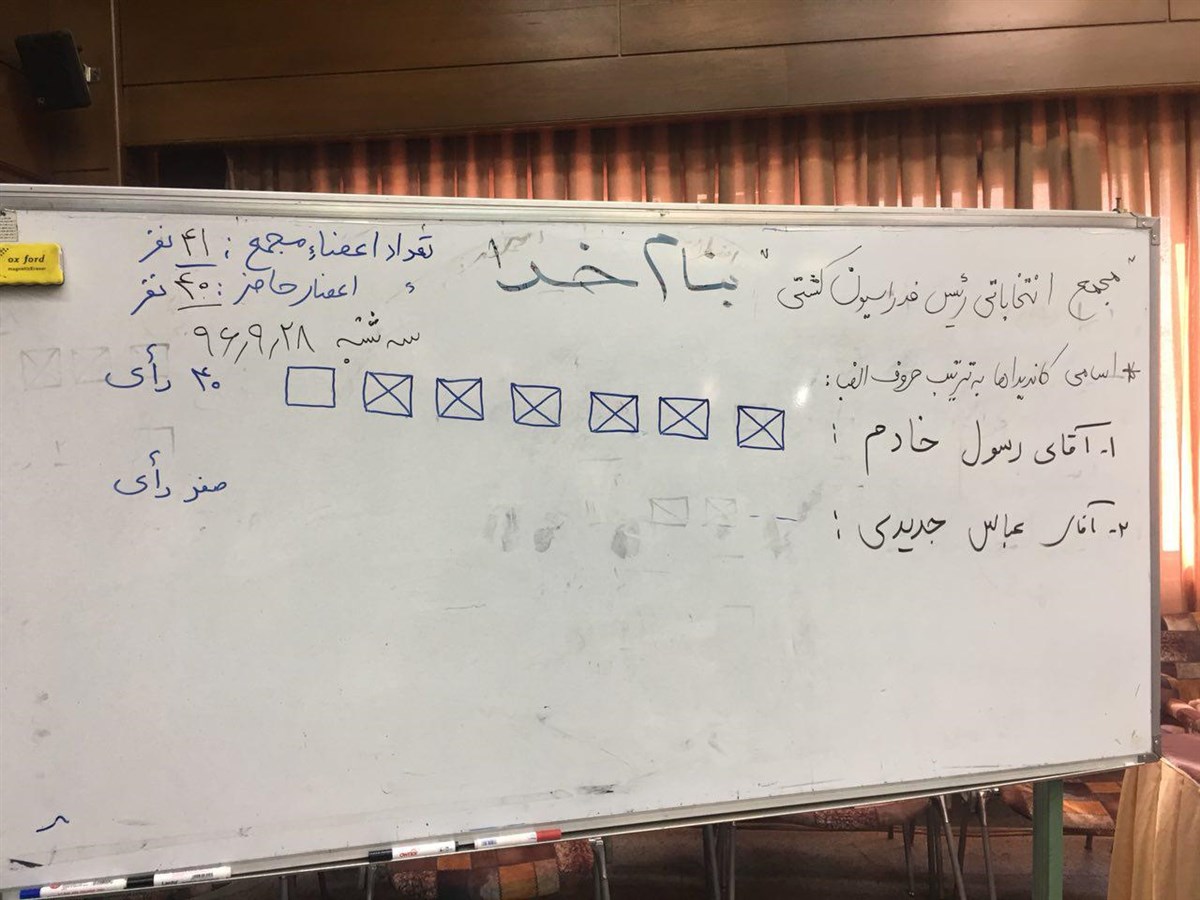 بنام خدا
"مجمع انتخاباتی رئیس فدراسیون کشتی"
تعداد اعضاء مجمع : ۴۱ نفر
اعضاء حاضر : ۴۰ نفر
سه شنبه ۹۶٫۹٫۲۸
* اسامی کاندیداها به ترتیب حروف الفبا :
۱- آقای رسول خادم : ۴۰ رأی
۲- آقای عباس جدیدی : صفر رأی
ox ford